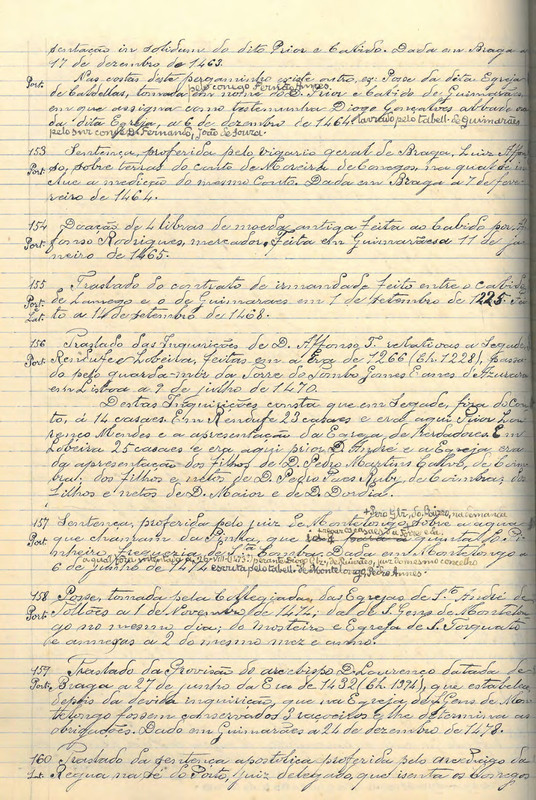 sentação in solidum do dito Prior e Cabido. Dada em Braga a
17 de dezembro de 1463.
Port. Nas costas deste pergaminho existe outro, ex: Posse da dita Egreja
pelo conigo Fernão Annes,
de Caldellas, tomada em nome do D. Prior e Cabido de Guimarães
em que assigna como testemunha Diogo Gonçalves abbade
da dita Egreja, a 6 de dezembro de 1464 lavrado pelo tabell. de Guimarães
pelo snr conde D. Fernando, João de Sousa.
153 Sentença, proferida pelo vigario geral de Braga, Luiz Affon
Port. so, sobre terras do couto de Moreira de Conegos, na qual se in
clue a medição do mesmo Couto. Dada em Braga a 7 de feve
reiro de 1464.
154 Doação de 4 libras de moeda antiga feita ao Cabido por Af
Port. fonso Rodrigues, mercador. Feita em Guimarães a 11 de ja
neiro de 1465.
155 Traslado do contrato de irmandade feito entre o Cabido
Port. de Lamego e o de Guimaraes em 1 de setembro de 1225. Fei
e Lat. to a 14 de setembro de 1468.
156 Traslado das Inquirições de D. Affonso 2º. relativas a Segade,
Port. Rendufe e Lobeira, feitas em a Era de 1266 (Ch. 1228), passa
do pelo guarda-mór da Torre do Tombo Gomes Eanes de Azurara
em Lisboa a 9 de julho de 1470.
Destas Inquirições consta que em Segade, fira do Cou
to, á 14 casaes. Em Rendufe 23 casaes e era aqui Prior Lou
renço Mendes e a apresentação da Egreja de herdadores. Em
Lobeira 25 casaes e era aqui prior D. André e a Egreja era
da apresentação dos filhos de D. Pedro Martins Galvo, de Coim
bra; dos filhos e netos de D. Pedro Soares Rubi, de Coimbra; dos
filhos e netos de D. Maior e de D. Dordia.
157 Sentença, proferida pelo juiz de Montelongo sobre a agua
Port. que chamam da Sinha, que
nheiro, freguezia de S.ta Comba. Dada em Montelongo a
6 de junho de 1474 escrita pelo tabell. de Montelongo, Pedro Annes.
158 Posse, tomada pela Collegiada, das Egrejas de S.to André de
Port. Tolões a 1 de Novembro de 1474; da de S. Gens de Montelon
go no mesmo dia; do mosteiro e Egreja de S. Torquato
e annexas a 2 do mesmo mez e anno.
159 Traslado da Provisão do arcebispo D. Lourenço datada de
Port. Braga a 27 de junho da Era de 1432 (Ch. 1394), que estabelece
depois da devida inquirição, que na Egreja de S. Gens de Mon
telongo fossem conservados 3 raçoeiros e lhe determina as
obrigações. Dado em Guimarães a 24 de dezembro de 1478.
160 Traslado da sentença apostolica proferida pelo arcediago da
Lat. Regua na sé do Porto, juiz delegado, que isenta os conegos